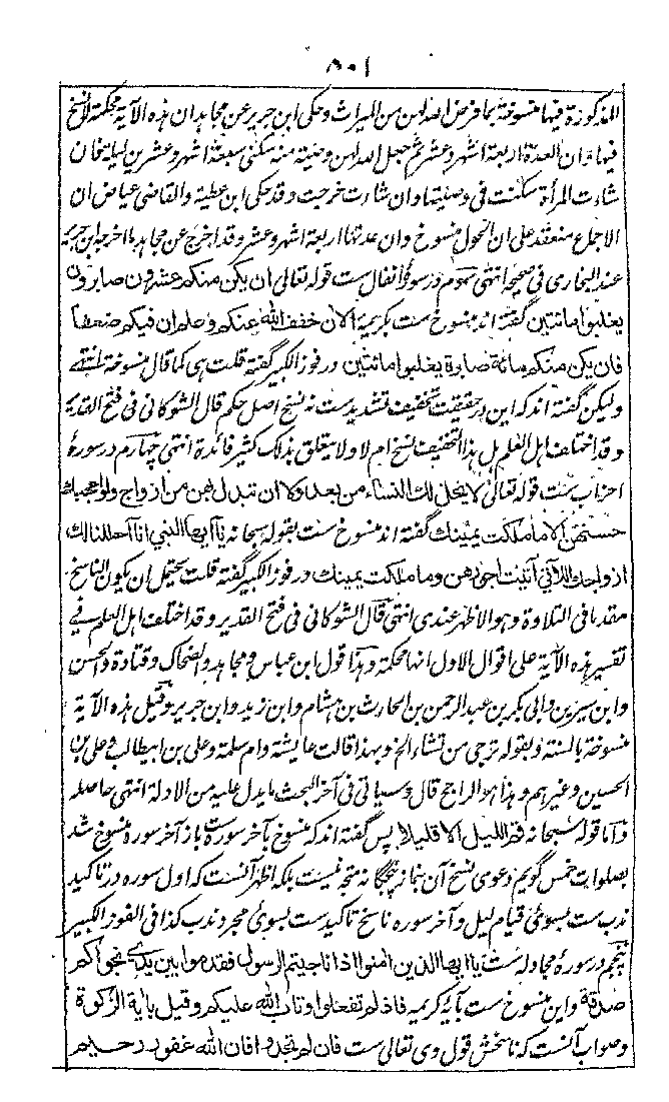 ۵۰۱
المذکورة فیها منسوخة بما فرض الله لهن من المیراث وحکی ابن جریر عن مجاهد ان هذه الآیة محکمة لا نسخ
فیها وان العدة اربعة اشهر وعشر ثم جعل الله لهن وصیة منه سکنی سبعة اشهر وعشرین لیلة فان
شاءت المرأة سکنت فی وصیتها وان شاءت خرجت وقد حکی ابن عطیة والقاضی عیاض ان
الاجماع منعقد علی ان الحول منسوخ وان عدتها اربعة اشهر وعشر وقد اخرج عن مجاهد ما اخرجه ابن جریر
عنه البخاری فی صحیحه انتهی سوم در سورۂ انفال ست قوله تعالی ان یکن منکم عشرون صابرون
یغلبوا مائتین گفته اند منسوخ ست بکریمۂ الآن خفف الله عنکم وعلم ان فیکم ضعفا
فان یکن منکم مائة صابرة یغلبوا مائتین در فوز الکبیر گفته قلت هی کما قال منسوخة انتهے
ولیکن گفته اند که این در حقیقت تخفیف تشدید ست نه نسخ اصل حکم قال الشوکانی فی فتح القدیر
وقد اختلف اهل العلم هل هذا التخفیف نسخ ام لا ولا یتعلق بذلک کثیر فائدة انتهی چهارم در سورۂ
احزاب ست قوله تعالی لا یحل لك النساء من بعد ولا ان تبدل بهن من ازواج ولو اعجبك
حسنهن الا ما ملکت یمینك گفته اند منسوخ ست بقوله سبحانه یا ایها النبی انا احللنا لك
ازواجك اللاتی آتیت اجورهن وما ملکت یمینك در فوز الکبیر گفته قلت یحتمل ان یکون الناسخ
مقدما فی التلاوة وهو الاظهر عندی انتهی قال الشوکانی فی فتح القدیر وقد اختلف اهل العلم فے
تفسیر هذه الآیة علی اقوال الاول انها محکمة وهذا قول ابن عباس ومجاهد والضحاک وقتادة والحسن
وابن سیرین وابی بکر بن عبد الرحمن بن الحارث بن هشام وابن زید وابن جریر وقیل هذه الآیة
منسوخة بالسنة وبقوله ترجی من تشاء الخ وبهذا قالت عایشة وام سلمة وعلی بن ابیطالب وعلی بن
الحسین وغیرهم وهذا هو الراجح قال وسیاتی فی آخر البحث ما یدل علیه من الادلة انتهی حاصله
واما قوله سبحانه قم اللیل الا قلیلا پس گفته اند که منسوخ بآخر سوره ست باز آخر سوره منسوخ شد
بصلوات خمس گویم دعوی نسخ آن بنماز پنجگانه متجه نیست بلکه اظهر آنست که اول سوره در تاکید
ندب ست بسوئ قیام لیل وآخر سوره ناسخ تاکید ست بسوئ مجرد ندب کذا فی الفوز الکبیر
پنجم در سورۂ مجادله ست یا ایها الذین امنوا اذا ناجیتم الرسول فقدموا بین یدے نجواکم
صدقة واین منسوخ ست بآیۂ کریمه فاذ لم تفعلوا وتاب الله علیکم وقیل بآیة الزکوة
وصواب آنست که ناسخش قول وی تعالی ست فان لم تجدوا فان الله غفور رحیم